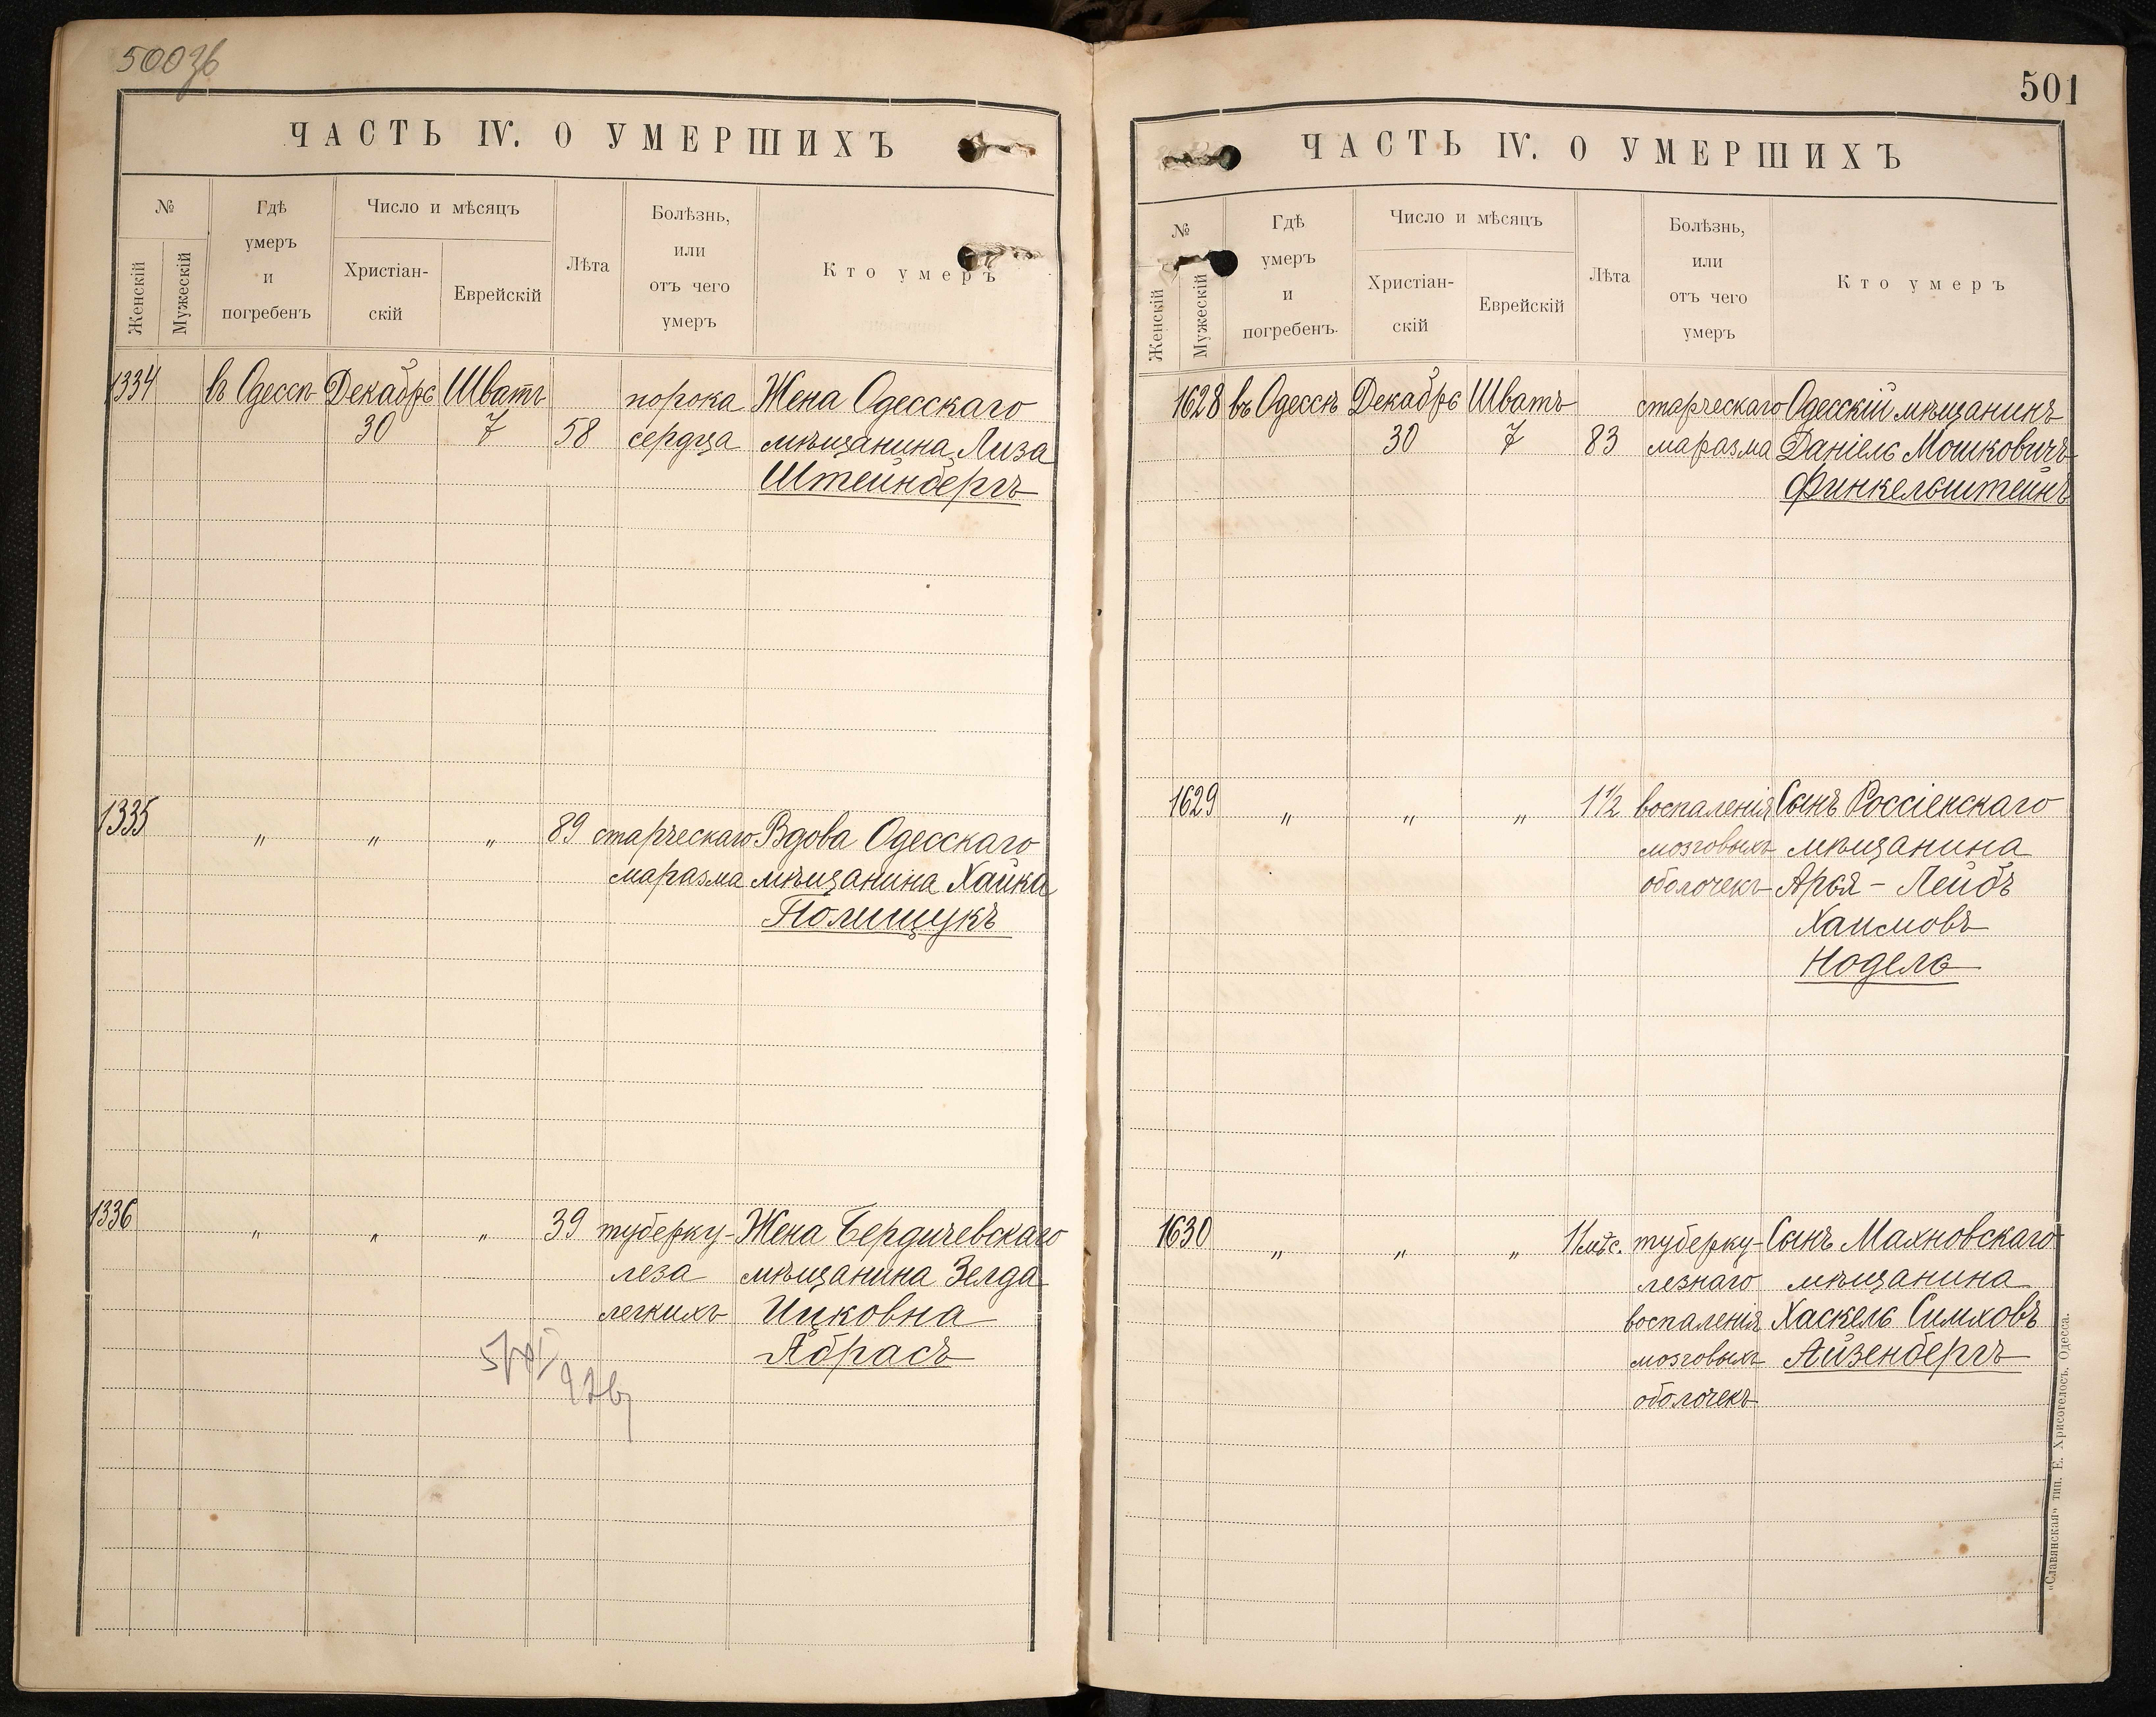 500
ЧАСТЬ IV. О УМЕРШИХЪ
№
Женскій
Мужескій
Гдѣ
умеръ
и
погребенъ
Число и мѣсяцъ
Христіан-
скій
Еврейскій
Лѣта
Болѣзнь,
или
отъ чего
умеръ
Кто умеръ
1334 въ Одессѣ Декабрь Шватъ порока Жена Одесскаго
30 7 58 сердца мѣщанина Лиза
Штейнбергъ
1335 " " " 89 старческаго Вдова Одесскаго
маразма мѣщанина Хайка
Полищукъ
1336 " " " 39 туберку- Жена Бердичевскаго
леза мѣщанина Зелда
легкихъ Ицковна
Ябрасъ
501
ЧАСТЬ IV. О УМЕРШИХЪ
№
Женскій
Мужескій
Гдѣ
умеръ
и
погребенъ.
Число и мѣсяцъ
Христіан-
скій
Еврейскій
Лѣта
Болѣзнь,
или
отъ чего
умеръ
Кто умеръ
1628 въ Одессѣ Декабрь Шватъ старческаго Одесскій мѣщанинъ
30 7 83 маразма Даніель Мошковичъ
Финкельштейнъ
1629 " " " 1 1/2 воспаленія Сынъ Россіенскаго
мозговыхъ мѣщанина
оболочекъ Арья - Лейбъ
Хаимовъ
Нодель
1630 " " " 11 мѣс. туберку- Сынъ Махновскаго
лезнаго мѣщанина
воспаленія Хаскель Симховъ
мозговыхъ Айзенбергъ
оболочекъ
„Славянская“ тип. Е. Хрисогелосъ. Одесса.